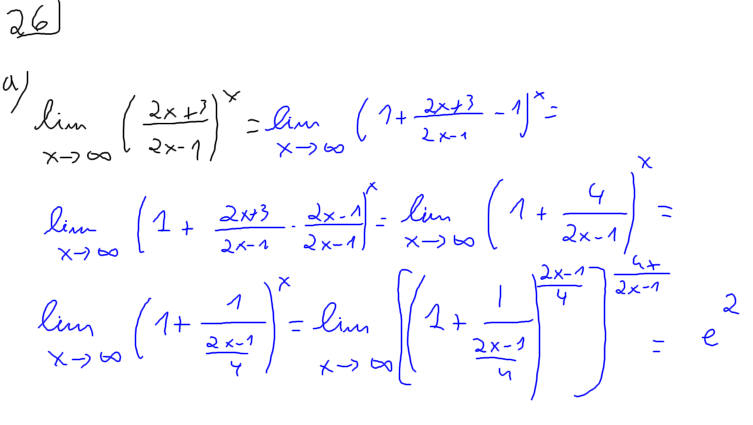 26
a)
lim x→∞ ((2x+3)/(2x-1))^x = lim x→∞ (1 + (2x+3)/(2x-1) - 1)^x =
lim x→∞ (1 + (2x+3)/(2x-1) - (2x-1)/(2x-1))^x = lim x→∞ (1 + 4/(2x-1))^x =
lim x→∞ (1 + 1/((2x-1)/4))^x = lim x→∞ [(1 + 1/((2x-1)/4))^((2x-1)/4)]^(4x/(2x-1)) = e^2